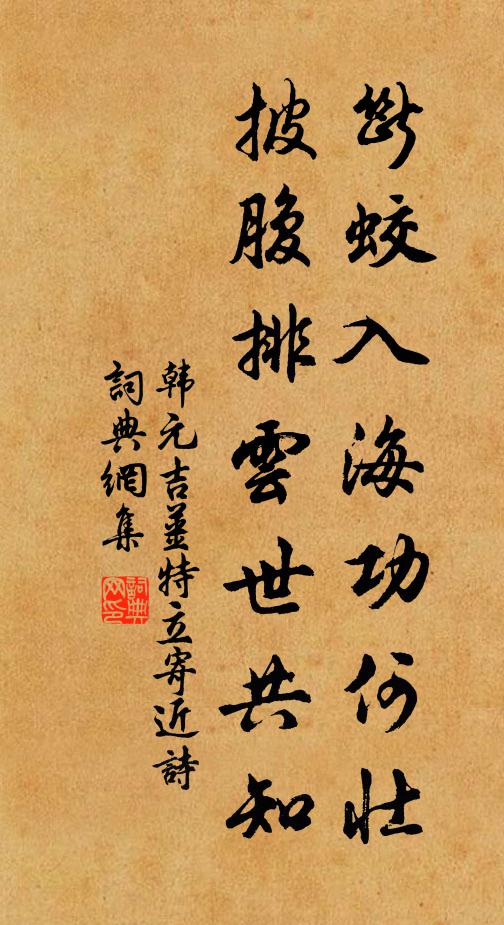 斷蛟入海功何壯
披腹排雲世共知
韩元吉薑特立寄近詩
詞典網集
詞典
网印